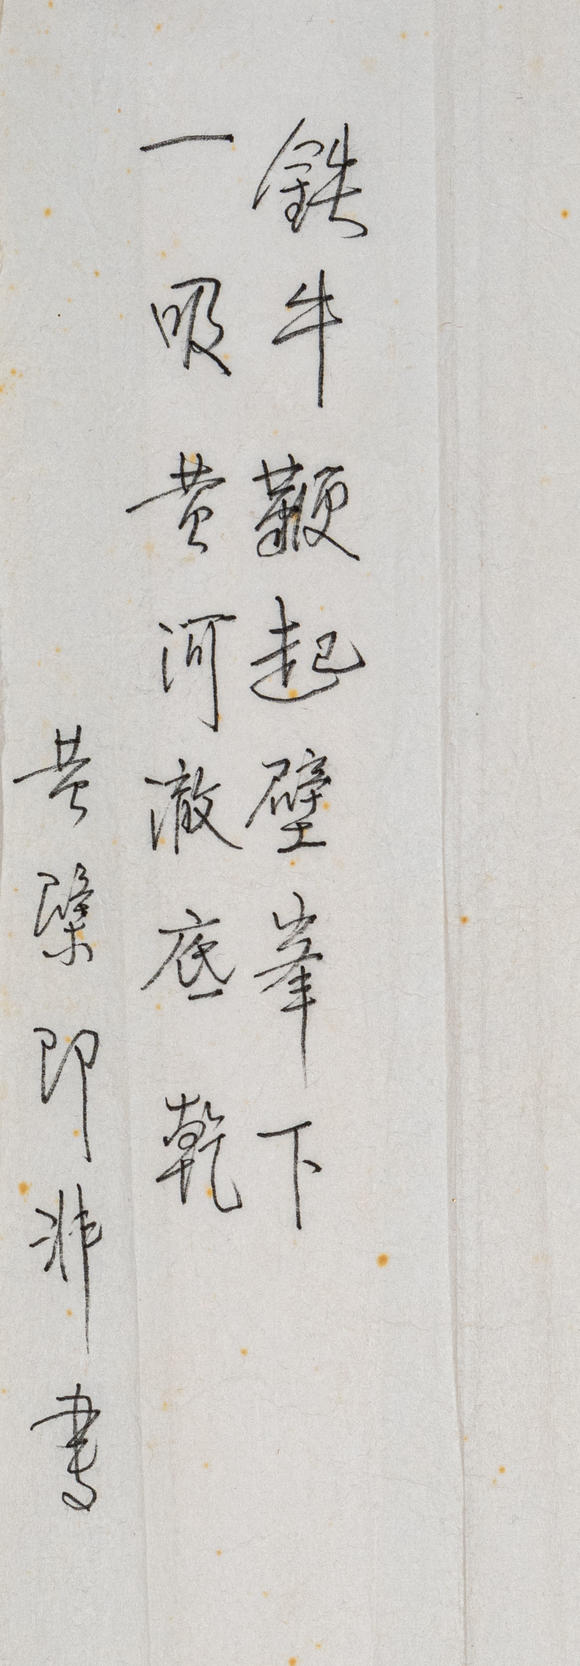 鉄牛鞭起壁峯下
一吸黄河澈底乾
黄檗即非書